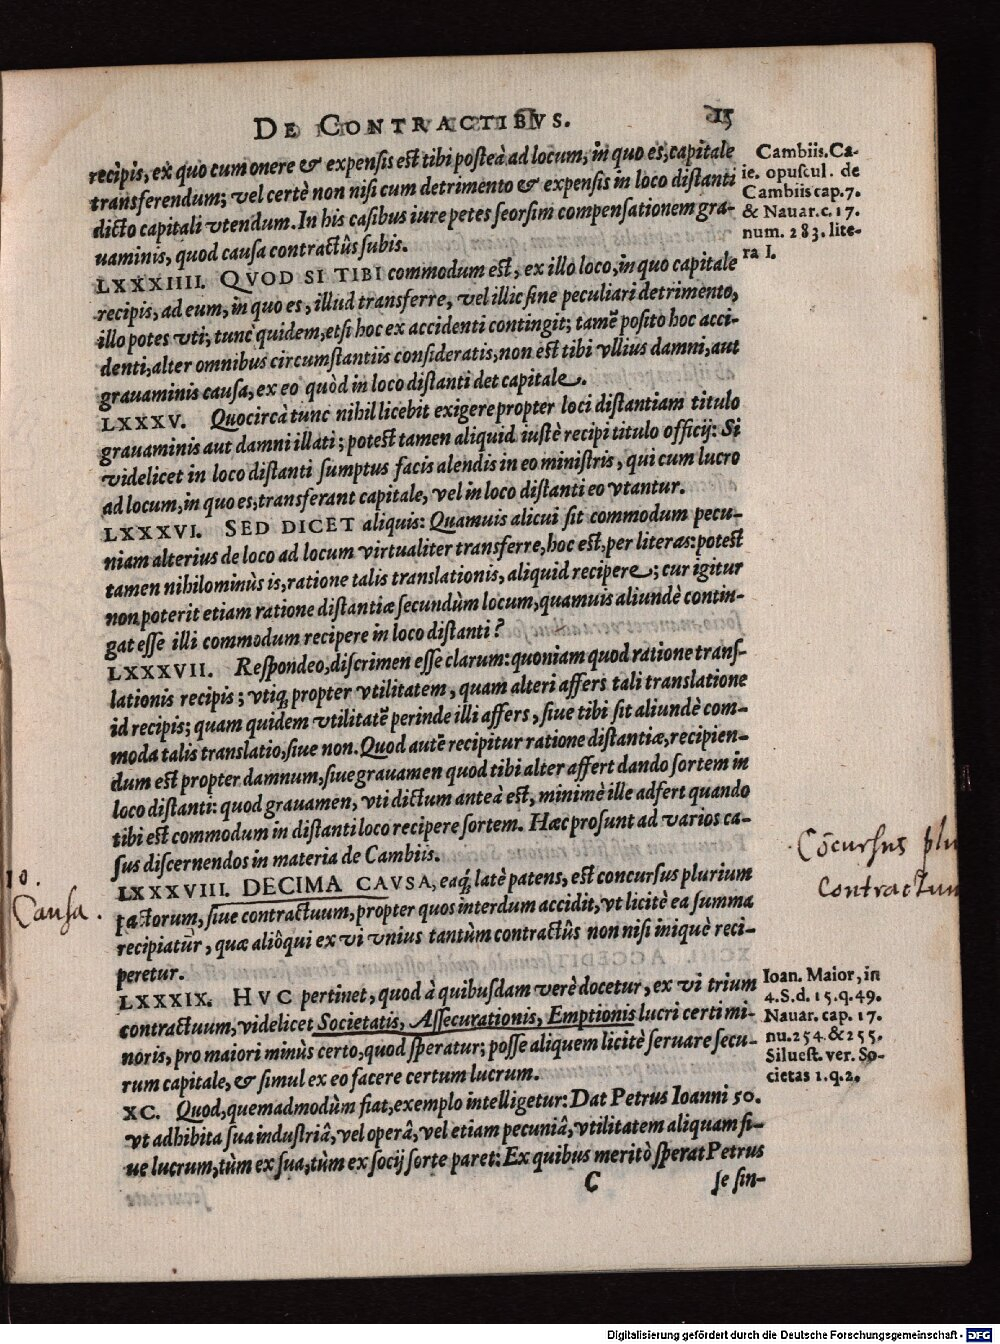 DE CONTRACTIBVS. 15
recipis, ex quo cum onere & expensis est tibi posteà ad locum, in quo es, capitale
transferendum; vel certè non nisi cum detrimento & expensis in loco distanti
dicto capitali vtendum. In his casibus iure petes seorsim compensationem gra-
uaminis, quod causa contractûs subis.
Cambiis. Ca-
ie. opuscul. de
Cambiis cap. 7.
& Nauar. c. 17.
num. 283. lite-
ra I.
LXXXIIII. QVOD SI TIBI commodum est, ex illo loco, in quo capitale
recipis, ad eum, in quo es, illud transferre, vel illic sine peculiari detrimento,
illo potes vti; tunc quidem, etsi hoc ex accidenti contingit; tamē posito hoc acci-
denti, alter omnibus circumstantiis consideratis, non est tibi vllius damni, aut
grauaminis causa, ex eo quòd in loco distanti det capitale.
LXXXV. Quocircà tunc nihil licebit exigere propter loci distantiam titulo
grauaminis aut damni illati; potest tamen aliquid iustè recipi titulo officij: Si
videlicet in loco distanti sumptus facis alendis in eo ministris, qui cum lucro
ad locum, in quo es, transferant capitale, vel in loco distanti eo vtantur.
LXXXVI. SED DICET aliquis: Quamuis alicui sit commodum pecu-
niam alterius de loco ad locum virtualiter transferre, hoc est, per literas: potest
tamen nihilominùs is, ratione talis translationis, aliquid recipere; cur igitur
non poterit etiam ratione distantiæ secundùm locum, quamuis aliundè contin-
gat esse illi commodum recipere in loco distanti?
LXXXVII. Respondeo, discrimen esse clarum: quoniam quod ratione trans-
lationis recipis; vtiq; propter vtilitatem, quam alteri affers tali translatione
id recipis; quam quidem vtilitatē perinde illi affers, siue tibi sit aliundè com-
moda talis translatio, siue non. Quod autē recipitur ratione distantiæ, recipien-
dum est propter damnum, siue grauamen quod tibi alter affert dando sortem in
loco distanti: quod grauamen, vti dictum anteà est, minimè ille adfert quando
tibi est commodum in distanti loco recipere sortem. Hæc prosunt ad varios ca-
sus discernendos in materia de Cambiis.
10.
Causa.
Cōcursus plu
Contractuum
LXXXVIII. DECIMA CAVSA, eaq; latè patens, est concursus plurium
pactorum, siue contractuum, propter quos interdum accidit, vt licitè ea summa
recipiatur, quæ aliôqui ex vi vnius tantùm contractûs non nisi iniquè reci-
peretur.
LXXXIX. HVC pertinet, quod à quibusdam verè docetur, ex vi trium
contractuum, videlicet Societatis, Assecurationis, Emptionis lucri certi mi-
noris, pro maiori minùs certo, quod speratur; posse aliquem licitè seruare secu-
rum capitale, & simul ex eo facere certum lucrum.
Ioan. Maior, in
4. S. d. 15. q. 49.
Nauar. cap. 17.
nu. 254. & 255.
Siluest. ver. So-
cietas 1. q. 2.
XC. Quod, quemadmodùm fiat, exemplo intelligetur: Dat Petrus Ioanni 50.
vt adhibita sua industriâ, vel operâ, vel etiam pecuniâ, vtilitatem aliquam si-
ue lucrum, tùm ex sua, tùm ex socij sorte paret: Ex quibus meritò sperat Petrus
C se sin-
Digitalisierung gefördert durch die Deutsche Forschungsgemeinschaft - DFG